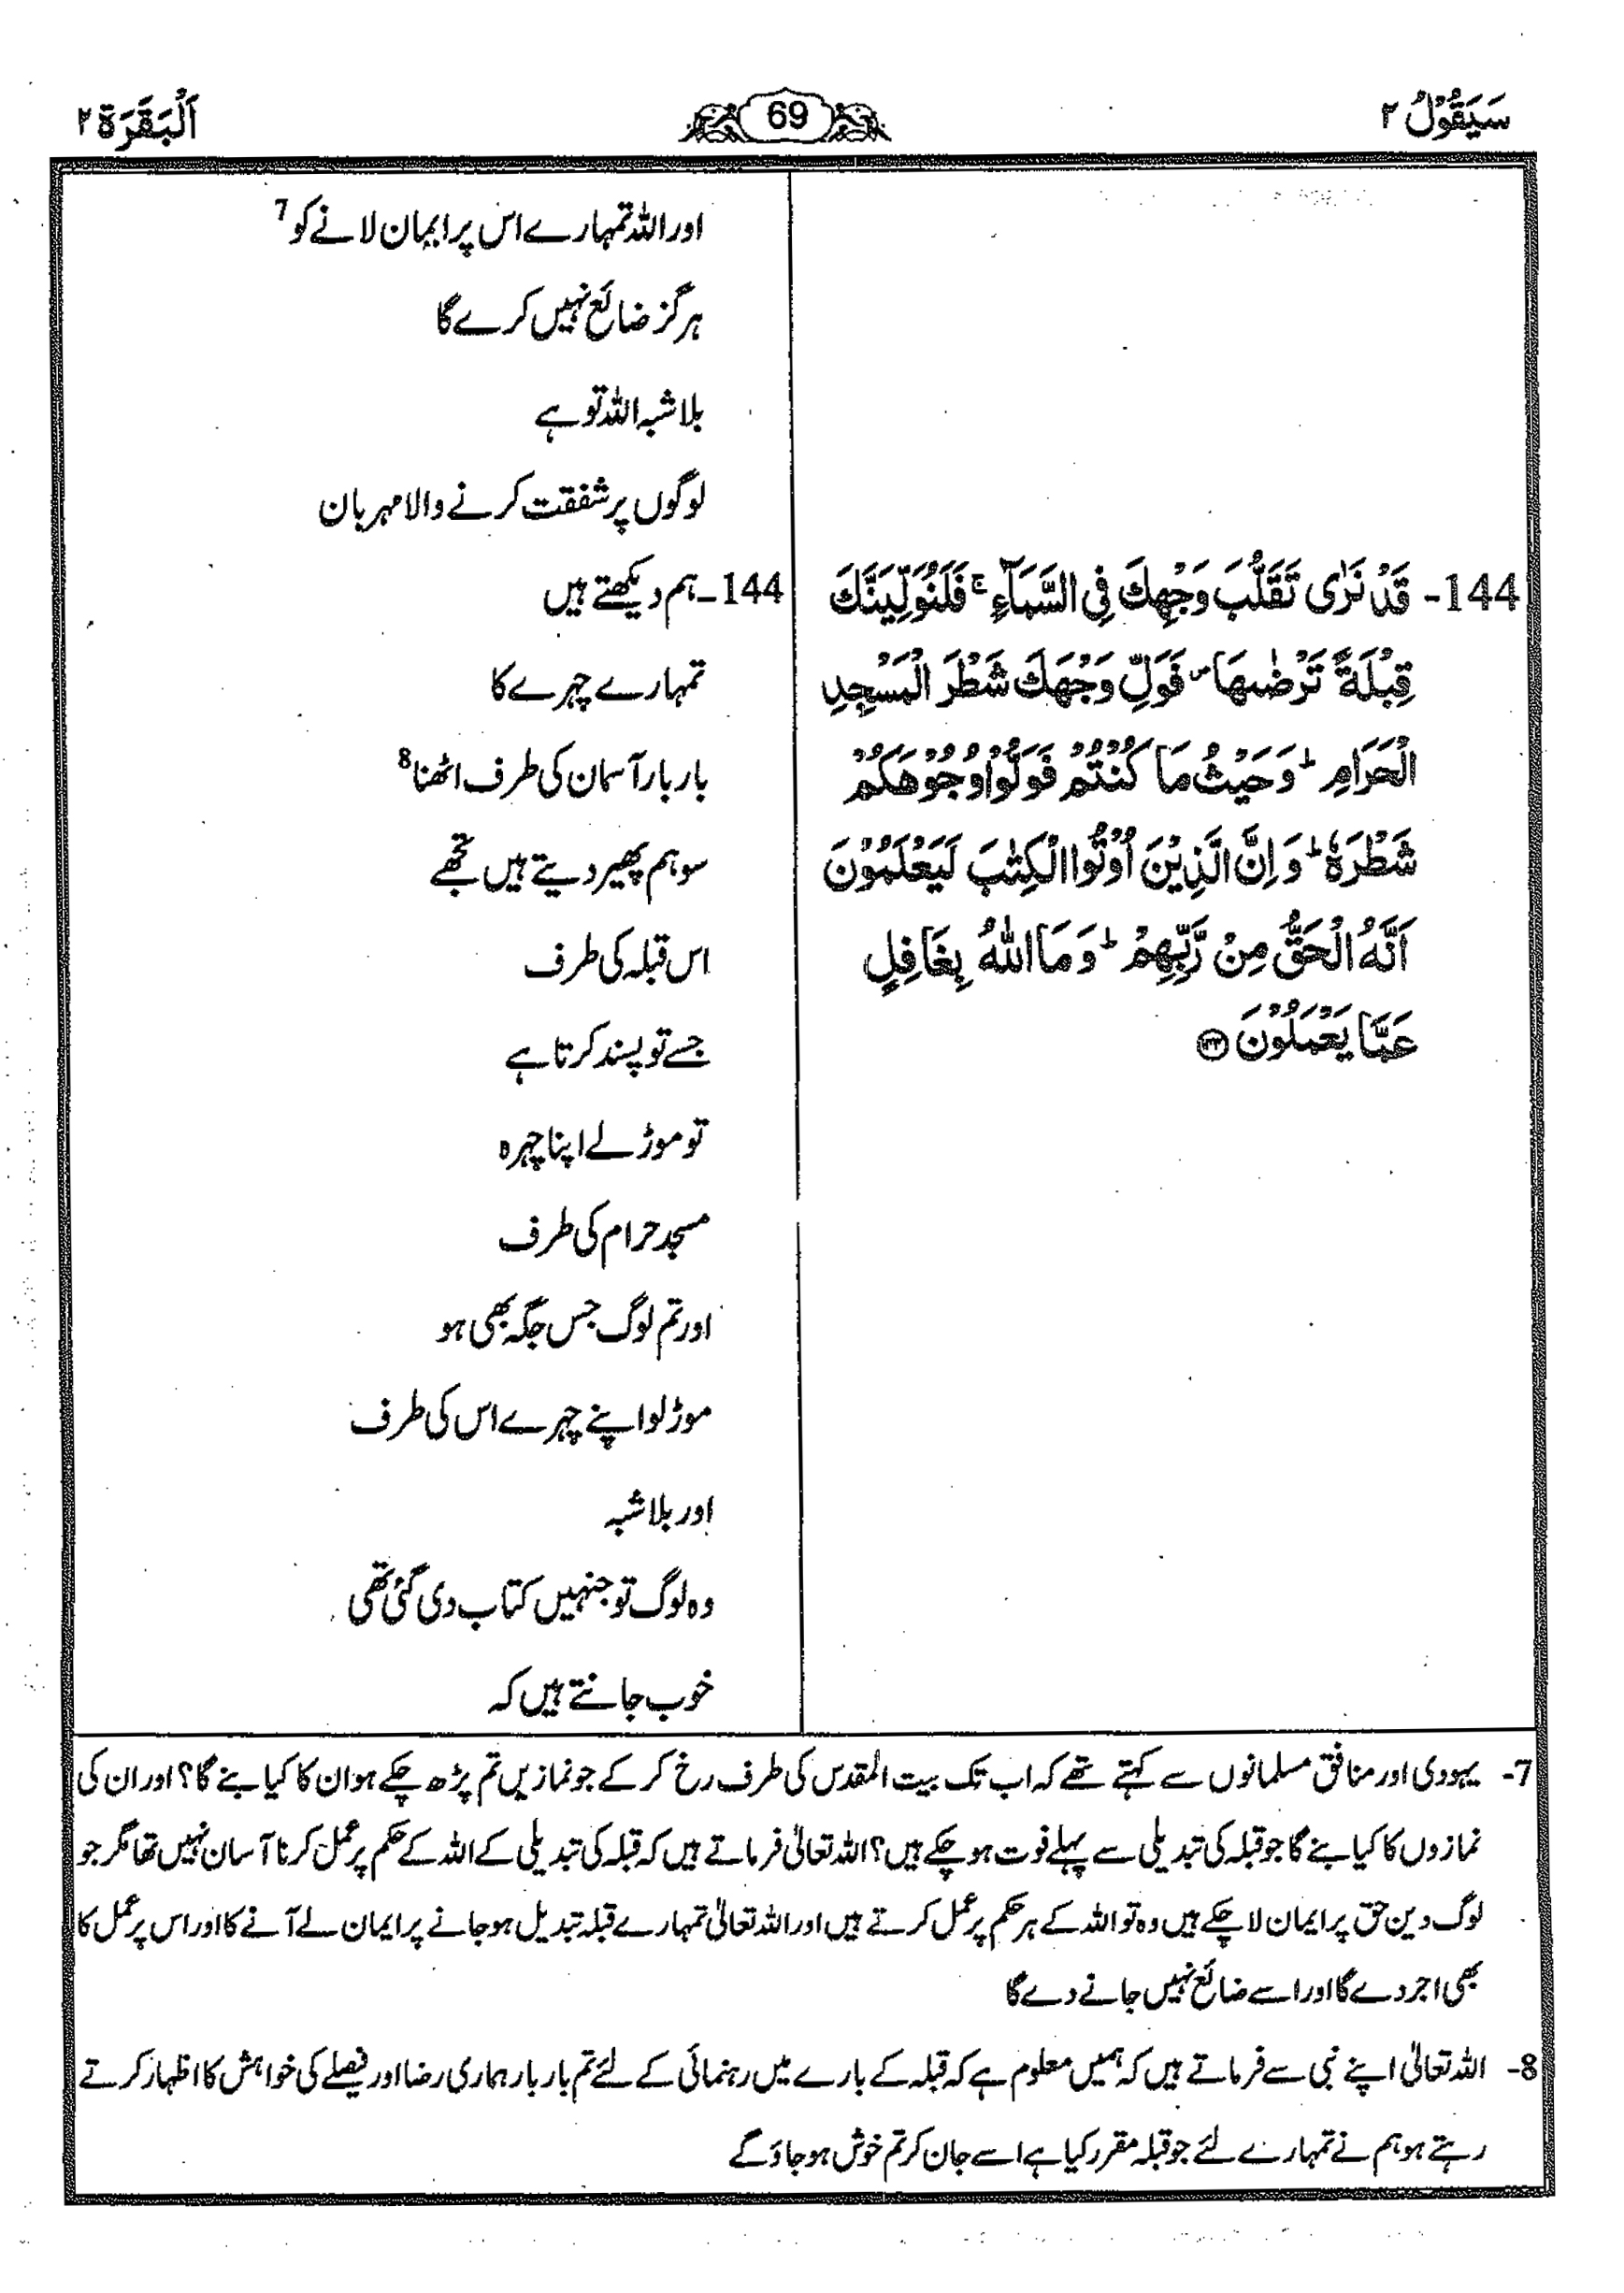 سَيَقُوْلُ ٢
69
اَلْبَقَرَة ٢
144- قَدْ نَرٰى تَقَلُّبَ وَجْهِكَ فِى السَّمَآءِ ۚ فَلَنُوَلِّيَنَّكَ
قِبْلَةً تَرْضٰىهَا ۪ فَوَلِّ وَجْهَكَ شَطْرَ الْمَسْجِدِ
الْحَرَامِ ؕ وَحَيْثُ مَا كُنْتُمْ فَوَلُّوْا وُجُوْهَكُمْ
شَطْرَهٗ ؕ وَ اِنَّ الَّذِيْنَ اُوْتُوا الْكِتٰبَ لَيَعْلَمُوْنَ
اَنَّهُ الْحَقُّ مِنْ رَّبِّهِمْ ؕ وَمَا اللّٰهُ بِغَافِلٍ
عَمَّا يَعْمَلُوْنَ ۝۱۴۴
اور اللہ تمہارے اس پر ایمان لانے کو 7
ہرگز ضائع نہیں کرے گا
بلاشبہ اللہ تو ہے
لوگوں پر شفقت کرنے والا مہربان
144۔ ہم دیکھتے ہیں
تمہارے چہرے کا
بار بار آسمان کی طرف اٹھنا 8
سو ہم پھیر دیتے ہیں تجھے
اس قبلہ کی طرف
جسے تو پسند کرتا ہے
تو موڑ لے اپنا چہرہ
مسجد حرام کی طرف
اور تم لوگ جس جگہ بھی ہو
موڑ لو اپنے چہرے اس کی طرف
اور بلاشبہ
وہ لوگ تو جنہیں کتاب دی گئی تھی
خوب جانتے ہیں کہ
7- یہودی اور منافق مسلمانوں سے کہتے تھے کہ اب تک بیت المقدس کی طرف رخ کر کے جو نمازیں تم پڑھ چکے ہو ان کا کیا بنے گا؟ اور ان کی
نمازوں کا کیا بنے گا جو قبلہ کی تبدیلی سے پہلے فوت ہو چکے ہیں؟ اللہ تعالیٰ فرماتے ہیں کہ قبلہ کی تبدیلی کے اللہ کے حکم پر عمل کرنا آسان نہیں تھا مگر جو
لوگ دین حق پر ایمان لا چکے ہیں وہ تو اللہ کے ہر حکم پر عمل کرتے ہیں اور اللہ تعالیٰ تمہارے قبلہ تبدیل ہو جانے پر ایمان لے آنے کا اور اس پر عمل کا
بھی اجر دے گا اور اسے ضائع نہیں جانے دے گا
8- اللہ تعالیٰ اپنے نبی سے فرماتے ہیں کہ ہمیں معلوم ہے کہ قبلہ کے بارے میں رہنمائی کے لئے تم بار بار ہماری رضا اور فیصلے کی خواہش کا اظہار کرتے
رہتے ہو ہم نے تمہارے لئے جو قبلہ مقرر کیا ہے اسے جان کر تم خوش ہو جاؤ گے